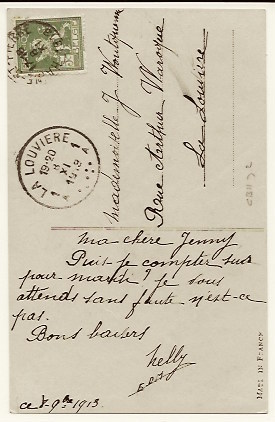 LA LOUVIERE
1 A
19-20
8 XI
1913
Mademoiselle J.
Rue Arthur Warocqué
La Louvière
Ma chère Jenny
Puis-je compter sur
pour mardi? Je vous
attends sans faute n'est-ce
pas.
Bons baisers
Nelly
ce 8-9bre 1913.
MADE IN FRANCE